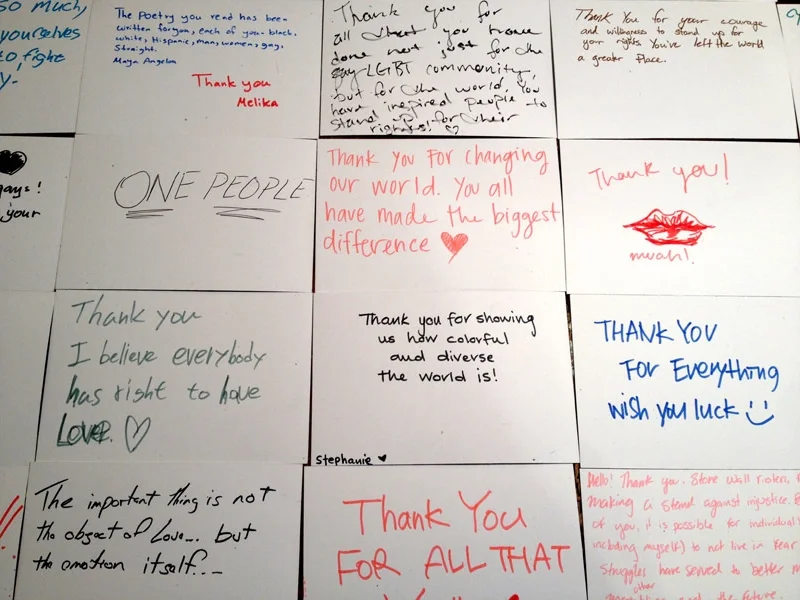 so much,
yourselves
to fight
y.
The Poetry you read has been
written for you, each of you- black,
white, Hispanic, man, women, gay,
Straight.
Maya Angelou
Thank you
Melika
Thank you for
all that you have
done not just for the
gay LGBT community,
but for the world. You
have inspired people to
stand up for their
rights!
Thank You for your courage
and willingness to stand up for
your rights. You've left the world
a greater place.
gays!
your
ONE PEOPLE
Thank you For changing
our world. You all
have made the biggest
difference
Thank you!
mwah!
Thank you
I believe everybody
has right to have
Love.
Thank you for showing
us how colorful
and diverse
the world is!
Stephanie
THANK YOU
For Everything
wish you luck
The important thing is not
the object of Love... but
the emotion itself...
Thank You
FOR ALL THAT
Hello! Thank you. Stone Wall rioters,
making a stand against injustice.
of you, it is possible for individual
including myself) to not live in fear
Struggles have served to better
other
and the future.